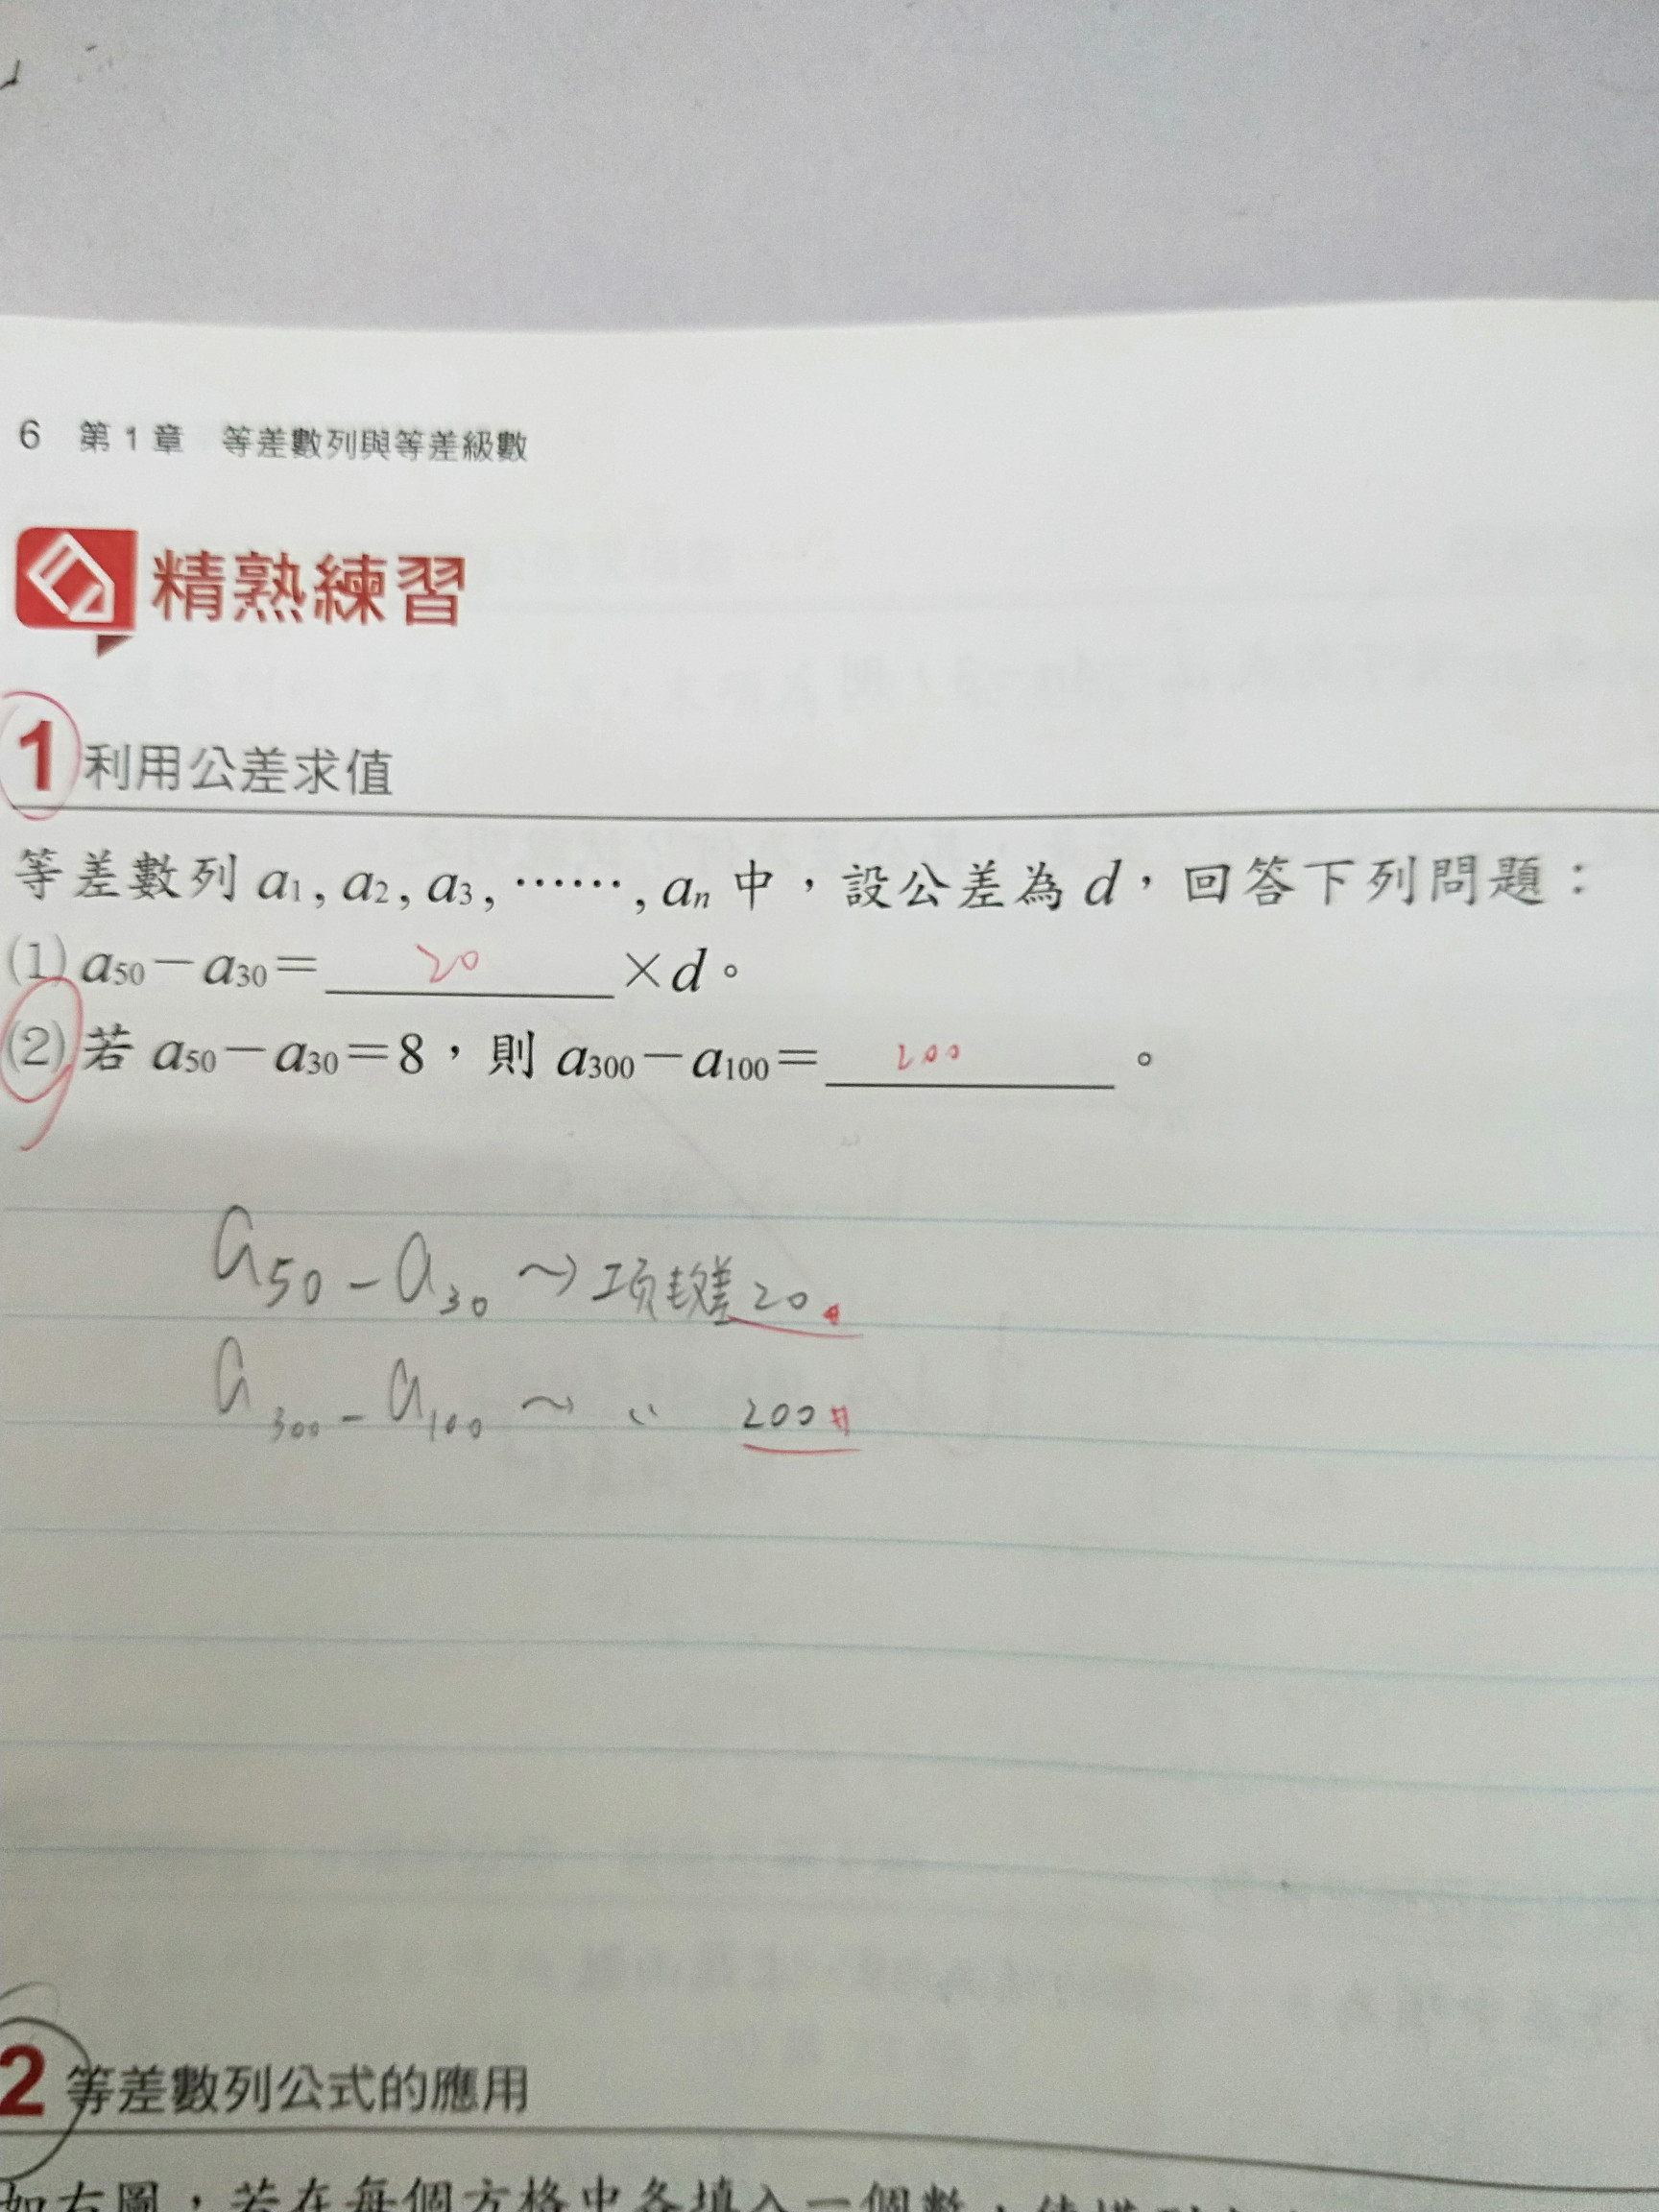 6 第1章 等差數列與等差級數
精熟練習
1 利用公差求值
等差數列 a1, a2, a3, ……, an 中，設公差為 d，回答下列問題：
(1) a50－a30＝ 20 ×d。
(2) 若 a50－a30＝8，則 a300－a100＝ 200 。
a50 － a30 ～> 項數差 20
a300 － a100 ～> 〃 200
2 等差數列公式的應用
如右圖，若在每個方格中各填入一個數，